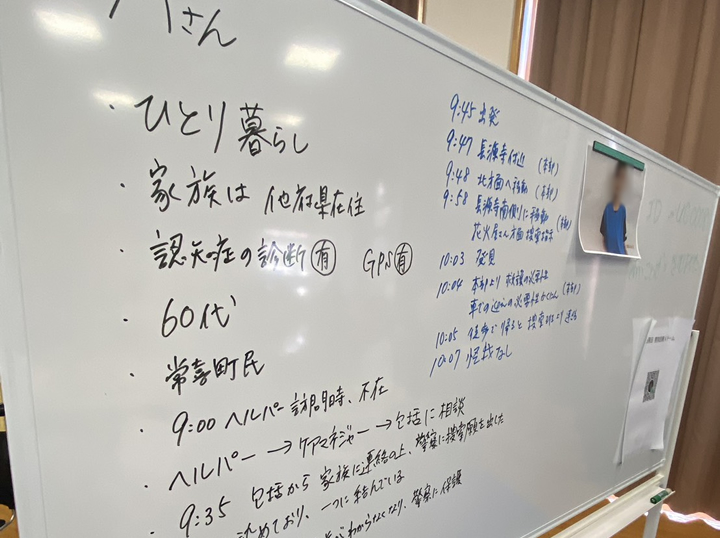 さん
・ひとり暮らし
・家族は 他府県在住
・認知症の診断有 GPS有
・60代
・常喜町民
・9:00 ヘルパー訪問時、不在
・ヘルパー→ケアマネジャー→包括に相談
・9:35 包括から家族に連絡の上、警察に捜索願を出した
ており、一つに結んでいる
わからなくなり、警察に保護
9:45 出発
9:47 長濱寺付近 (本部)
9:48 北方面へ移動 (本部)
9:58 長濱寺南側に移動 (本部)
花火屋さん方面捜索指示
10:03 発見
10:04 本部より 救護の必要性
車での迎えの必要性 (本部)
10:05 徒歩で帰ると捜索班より連絡
10:07 怪我なし